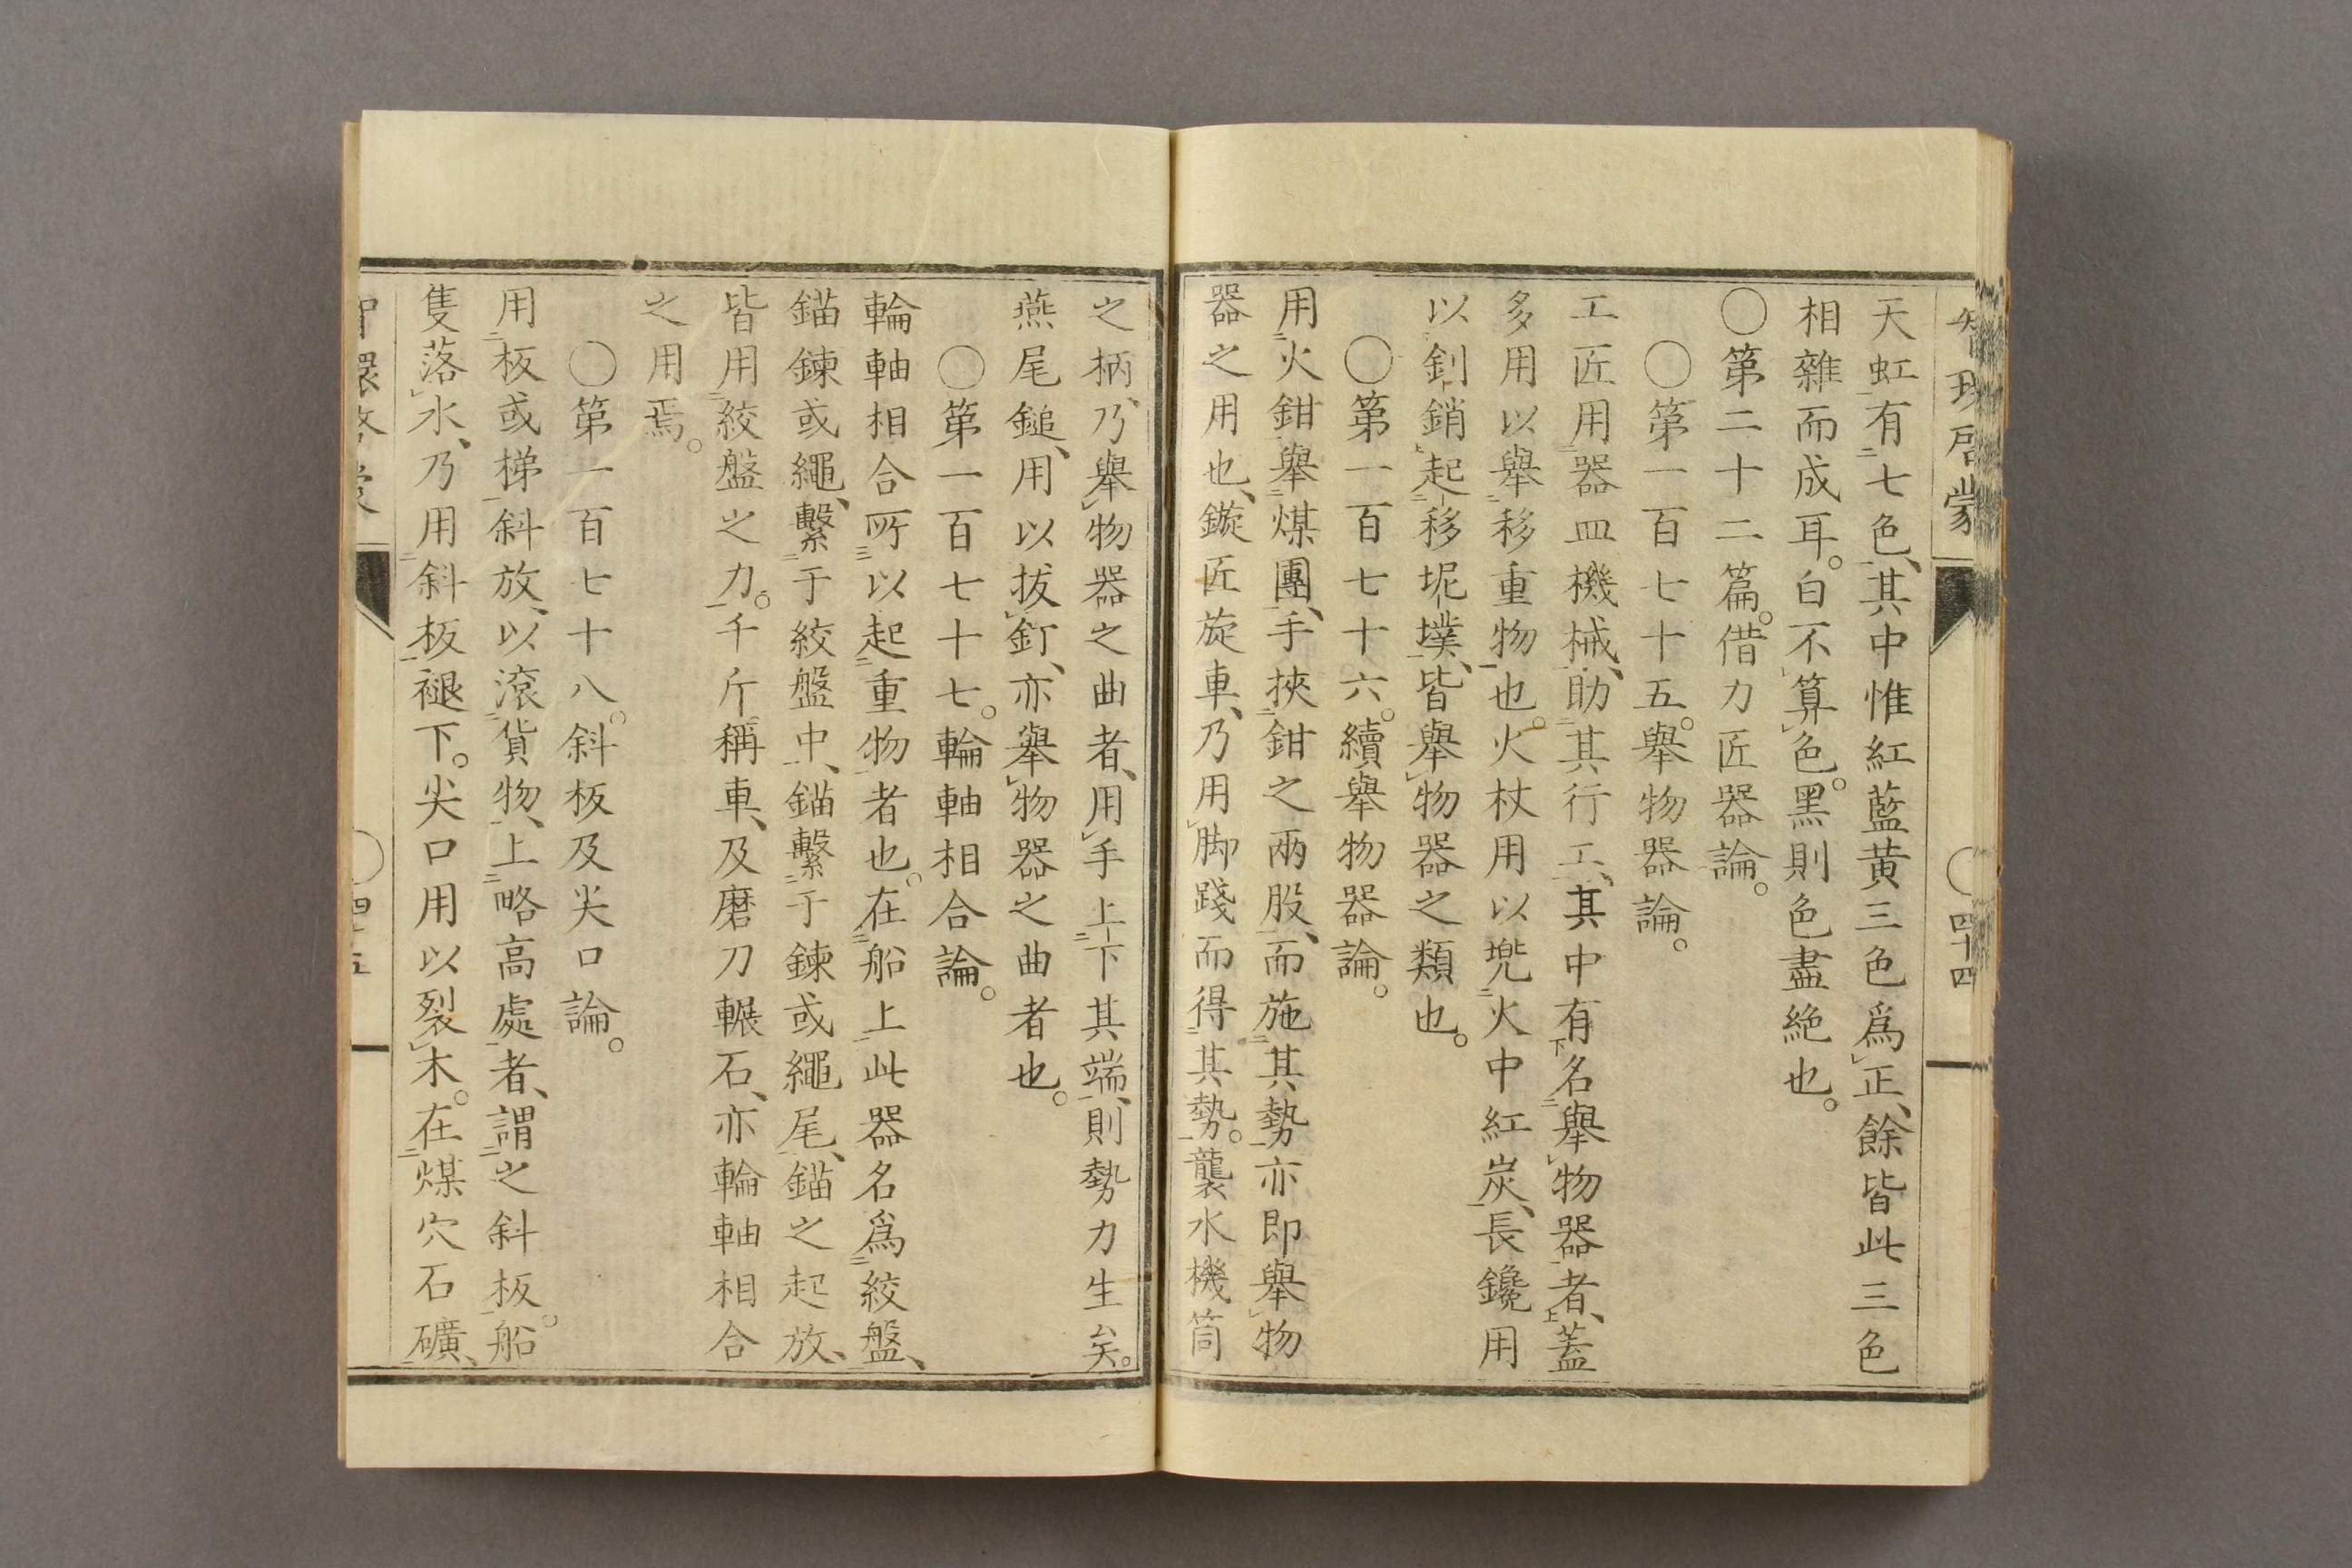 天虹有二七色一、其中惟紅藍黄三色爲レ正、餘皆此三色
相雜而成耳。白不レ算レ色。黑則色盡絶也。
〇第二十二篇。借力匠器論。
〇第一百七十五。舉物器論。
工匠用二器皿機械一、助二其行工一、其中有下名二舉レ物器一者上、蓋
多用以舉二移重物一也。火杖用以兠二火中紅炭一、長鑱用
以釗銷起二移坭墣一、皆舉レ物器之類也。
〇第一百七十六。續舉物器論。
用二火鉗一舉二煤團一、手挾二鉗之兩股一、而施二其勢一亦即舉レ物
器之用也、鏇匠旋車、乃用レ脚踐而得二其勢一。襲水機筒
之柄、乃舉レ物器之曲者、用レ手上二下其端一、則勢力生矣。
燕尾鎚、用以拔レ釘、亦舉レ物器之曲者也。
〇第一百七十七。輪軸相合論。
輪軸相合所三以起二重物一者也。在二船上一此器名爲二絞盤一、
錨鍊或繩、繫二于絞盤中一、錨繫二于鍊或繩尾一、錨之起放、
皆用二絞盤之力一。千斤稱車、及磨刀輾石、亦輪軸相合
之用焉。
〇第一百七十八。斜板及尖口論。
用二板或梯一斜放、以滾二貨物一、上二略高處一者、謂二之斜板一。船
隻落レ水、乃用二斜板一褪下。尖口用以裂レ木。在二煤穴石礦一、
智環啓蒙
〇四十四
〇四十五